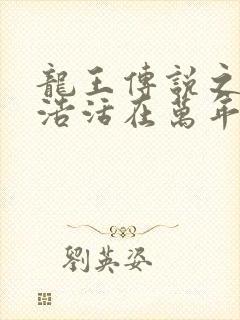 龍王傳說之
浩活在萬年
劉英姿